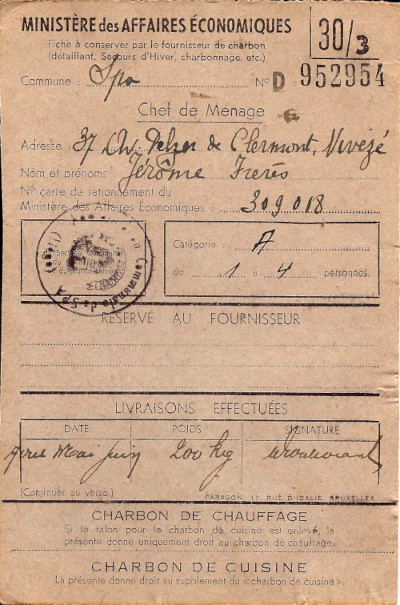 MINISTÈRE des AFFAIRES ÉCONOMIQUES
Fiche à conserver par le fournisseur de charbon
(détaillant, Secours d'Hiver, charbonnage, etc.)
30/3
Commune : Spa
N° D 952954
Chef de Ménage
Adresse : 37 Av. Pelzer de Clermont,
Nom et prénoms Jérôme
N° carte de rationnement du
Ministère des Affaires Économiques : 309018
Communale de SPA
Catégorie A
de 1 à 4 personnes.
RÉSERVÉ AU FOURNISSEUR
LIVRAISONS EFFECTUÉES
DATE POIDS SIGNATURE
Avril Mai Juin 200 kg
(Continuer au verso.)
PARAGON, 17, RUE D'IDALIE, BRUXELLES
CHARBON DE CHAUFFAGE
Si le talon pour le charbon de cuisine est enlevé, la
présente donne uniquement droit au charbon de chauffage.
CHARBON DE CUISINE
La présente donne droit au supplément du «charbon de cuisine».